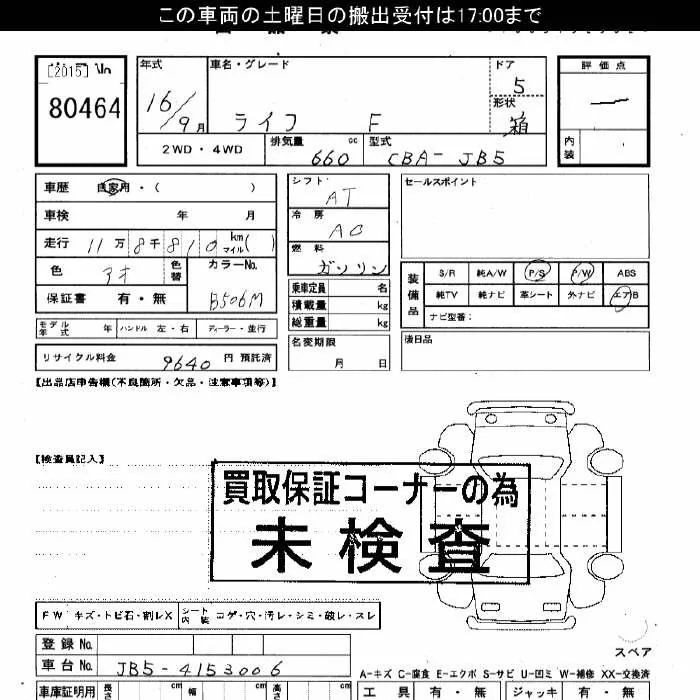 この車両の土曜日の搬出受付は17:00まで
[2015] No
80464
年式
16/9月
車名・グレード
ライフ F
ドア
5
形状
箱
評価点
内装
2WD・4WD
排気量 660 cc
型式 CBA-JB5
車歴 自家用・( )
車検 年 月
走行 11万8千810 km マイル( )
色 アオ 色替
カラーNo. B506M
保証書 有・無
モデル年式 年 ハンドル 左・右 ディーラー・並行
リサイクル料金 9640 円 預託済
シフト AT
冷房 AC
燃料 ガソリン
乗車定員 名
積載量 kg
総重量 kg
名変期限 月 日
セールスポイント
装備品
S/R 純A/W P/S P/W ABS
純TV 純ナビ 革シート 外ナビ エアB
ナビ型番:
後日品
【出品店申告欄(不良箇所・欠品・注意事項等)】
【検査員記入】
買取保証コーナーの為
未検査
FW キズ・トビ石・割レX シート内装 コゲ・穴・汚レ・シミ・破レ・スレ
登録No.
車台No. JB5-4153006
スペア
A-キズ C-腐食 E-エクボ S-サビ U-凹ミ W-補修 XX-交換済
車庫証明用 長さ cm 幅 cm 高さ cm
工具 有・無 ジャッキ 有・無